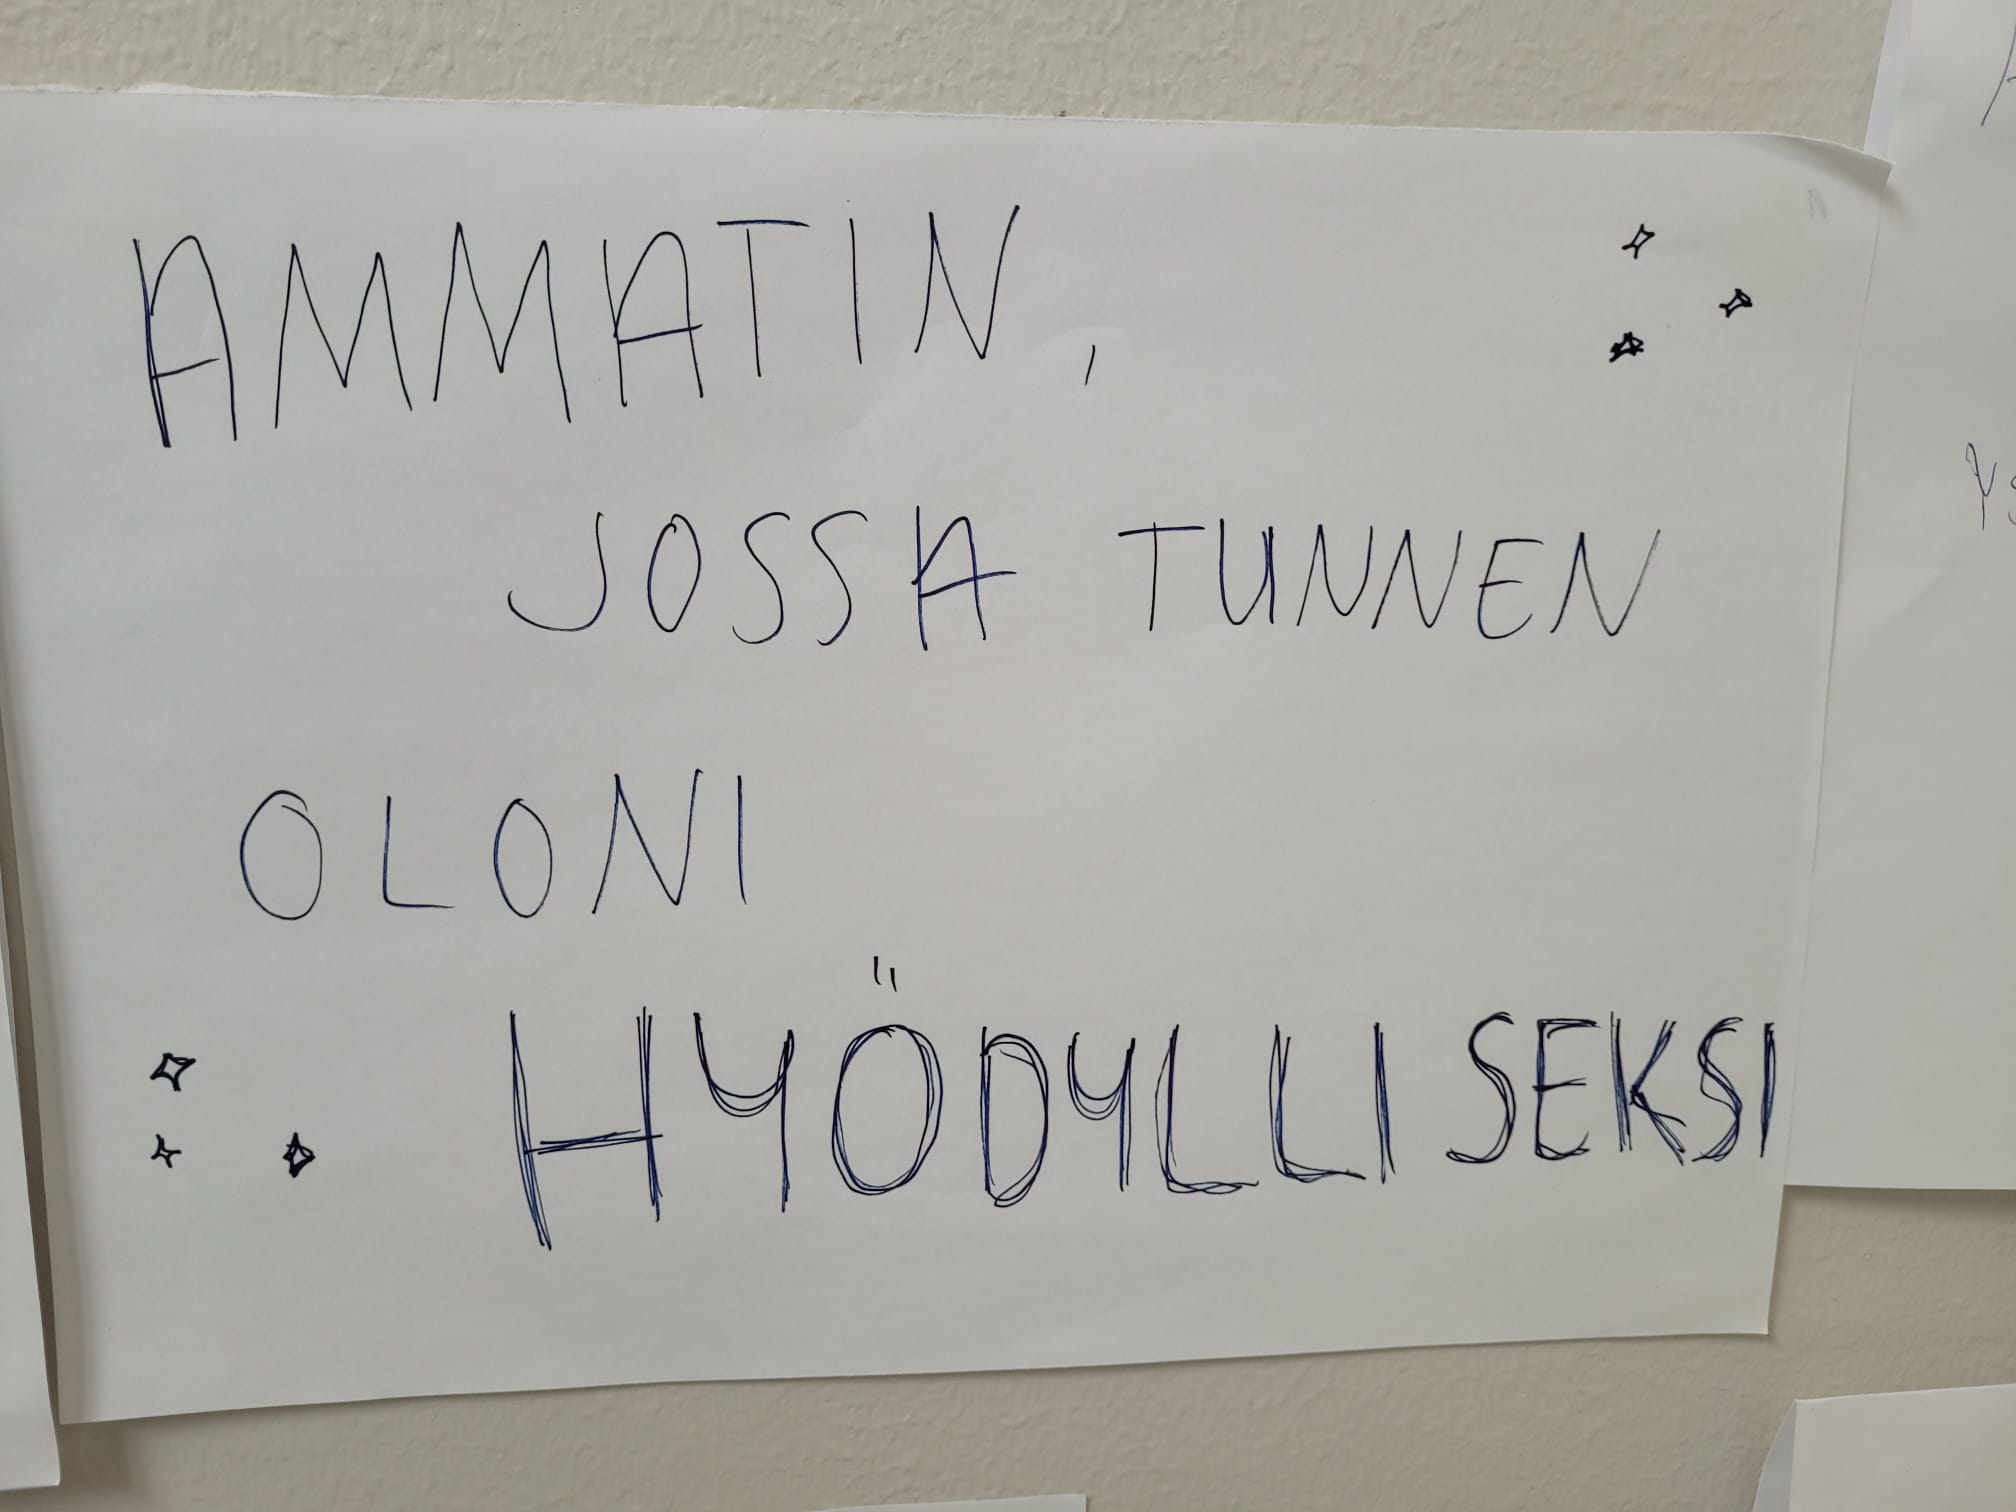 AMMATIN,
JOSSA TUNNEN
OLONI
HYÖDYLLISEKSI